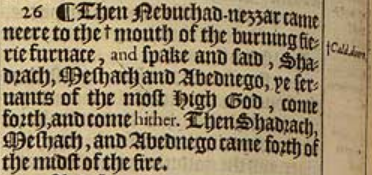 26 ¶ Then Nebuchad-nezzar came
neere to the † mouth of the burning fie-
rie furnace, and spake and said, Sha-
drach, Meshach and Abednego, ye ser-
uants of the most High God, come
forth, and come hither. Then Shadrach,
Meshach, and Abednego came forth of
the midst of the fire.
† Cald. doore.